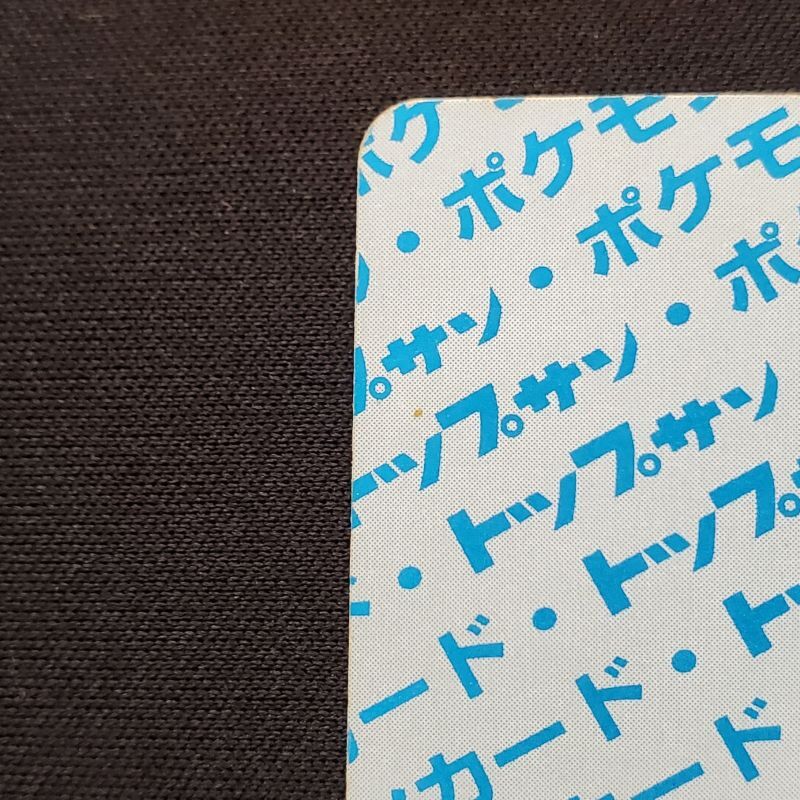 ポケモ
・ポケモ
・ポケモ
プサン・ポ
トップサン・ポ
・トップサン
ード・トップサ
カード・ト
カード